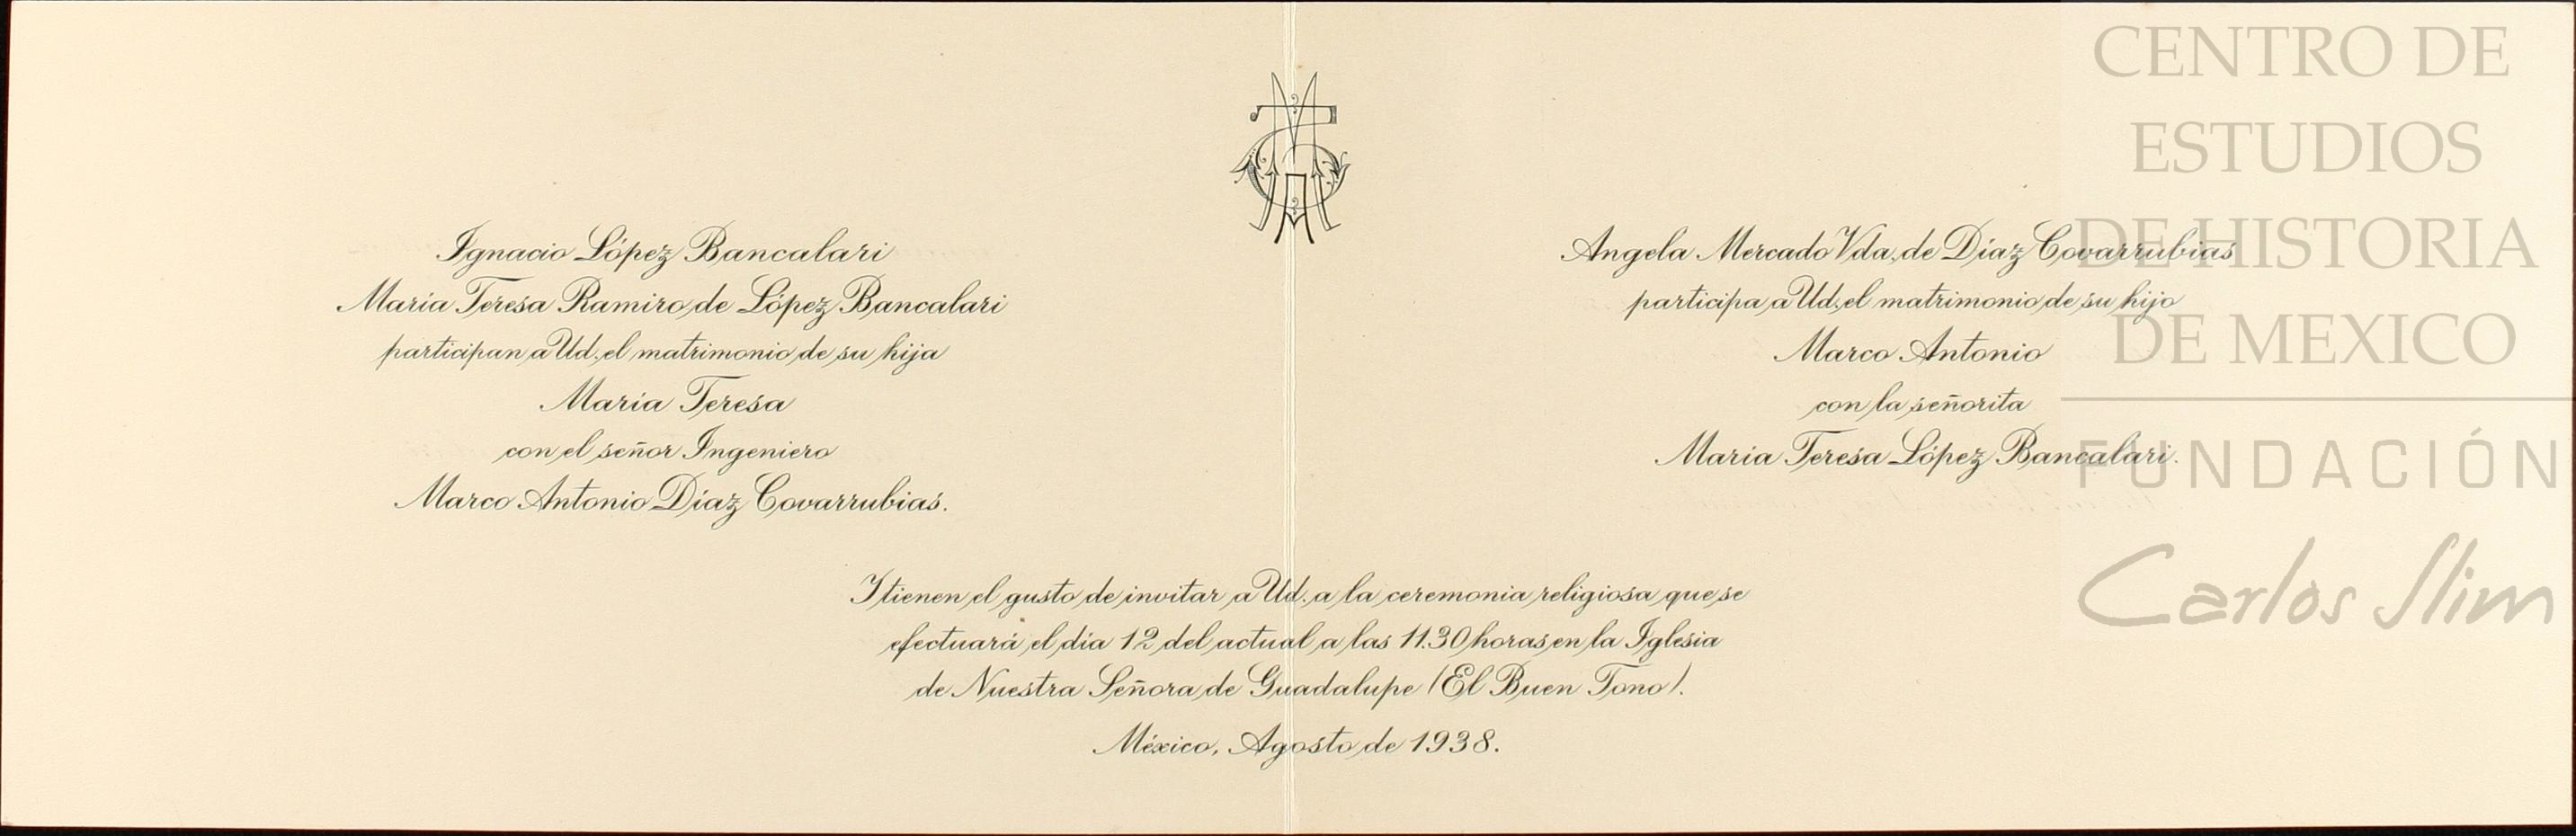 Ignacio López Bancalari
María Teresa Ramiro de López Bancalari
participan a Ud. el matrimonio de su hija
María Teresa
con el señor Ingeniero
Marco Antonio Díaz Covarrubias.
Angela Mercado Vda. de Díaz Covarrubias
participa a Ud. el matrimonio de su hijo
Marco Antonio
con la señorita
María Teresa López Bancalari.
Y tienen el gusto de invitar a Ud. a la ceremonia religiosa que se
efectuará el día 12 del actual a las 11.30 horas en la Iglesia
de Nuestra Señora de Guadalupe (El Buen Tono).
México, Agosto de 1938.
CENTRO DE
ESTUDIOS
DE HISTORIA
DE MEXICO
FUNDACIÓN
Carlos Slim